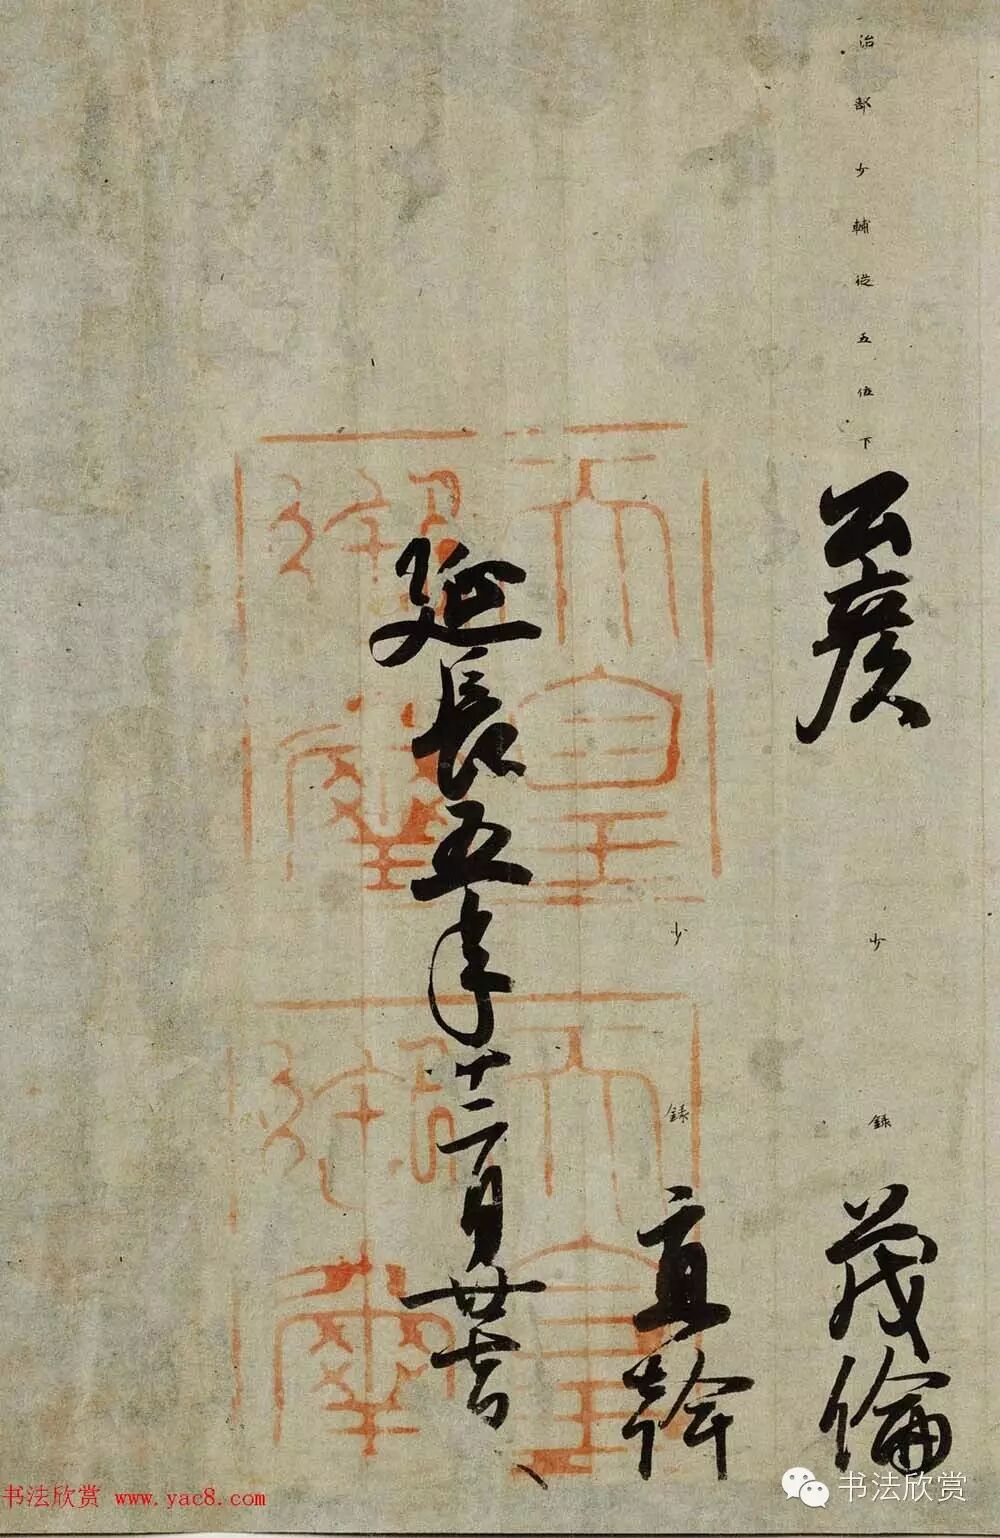 治部少輔從五位下公彦
少録茂倫
少録直幹
延長五年十二月廿七日
天皇御璽
天皇御璽
书法欣赏 www.yac8.com
书法欣赏